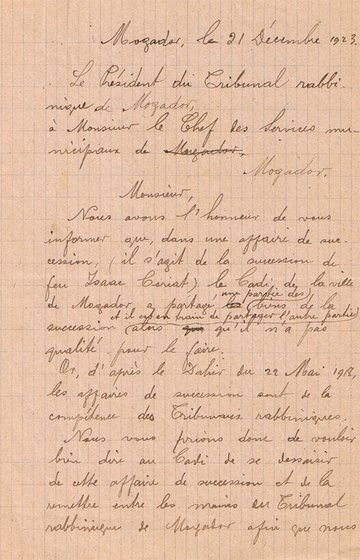 Mogador, le 21 Décembre 1923.
Le Président du Tribunal rabbi-
nique de Mogador,
à Monsieur le Chef des Services mu-
nicipaux de Mogador,
Mogador.
Monsieur,
Nous avons l'honneur de vous
informer que, dans une affaire de suc-
cession, (il s'agit de la sucession de
feu Isaac Coriat) le Cadi de la ville
une partie des
de Mogador, a partagé les biens de la
et il est en train de partager l'autre partie
succession (alors qu'il n'a pas
qualité pour le faire.
Or, d'après le Dahir du 22 Mai 1918,
les affaires de succession sont de la
compétence des Tribunaux rabbiniques.
Nous vous prions donc de vouloir
bien dire au Cadi de se dessaisir
de cette affaire de succession et de la
remettre entre les mains du Tribunal
rabbinique de Mogador afin que nous